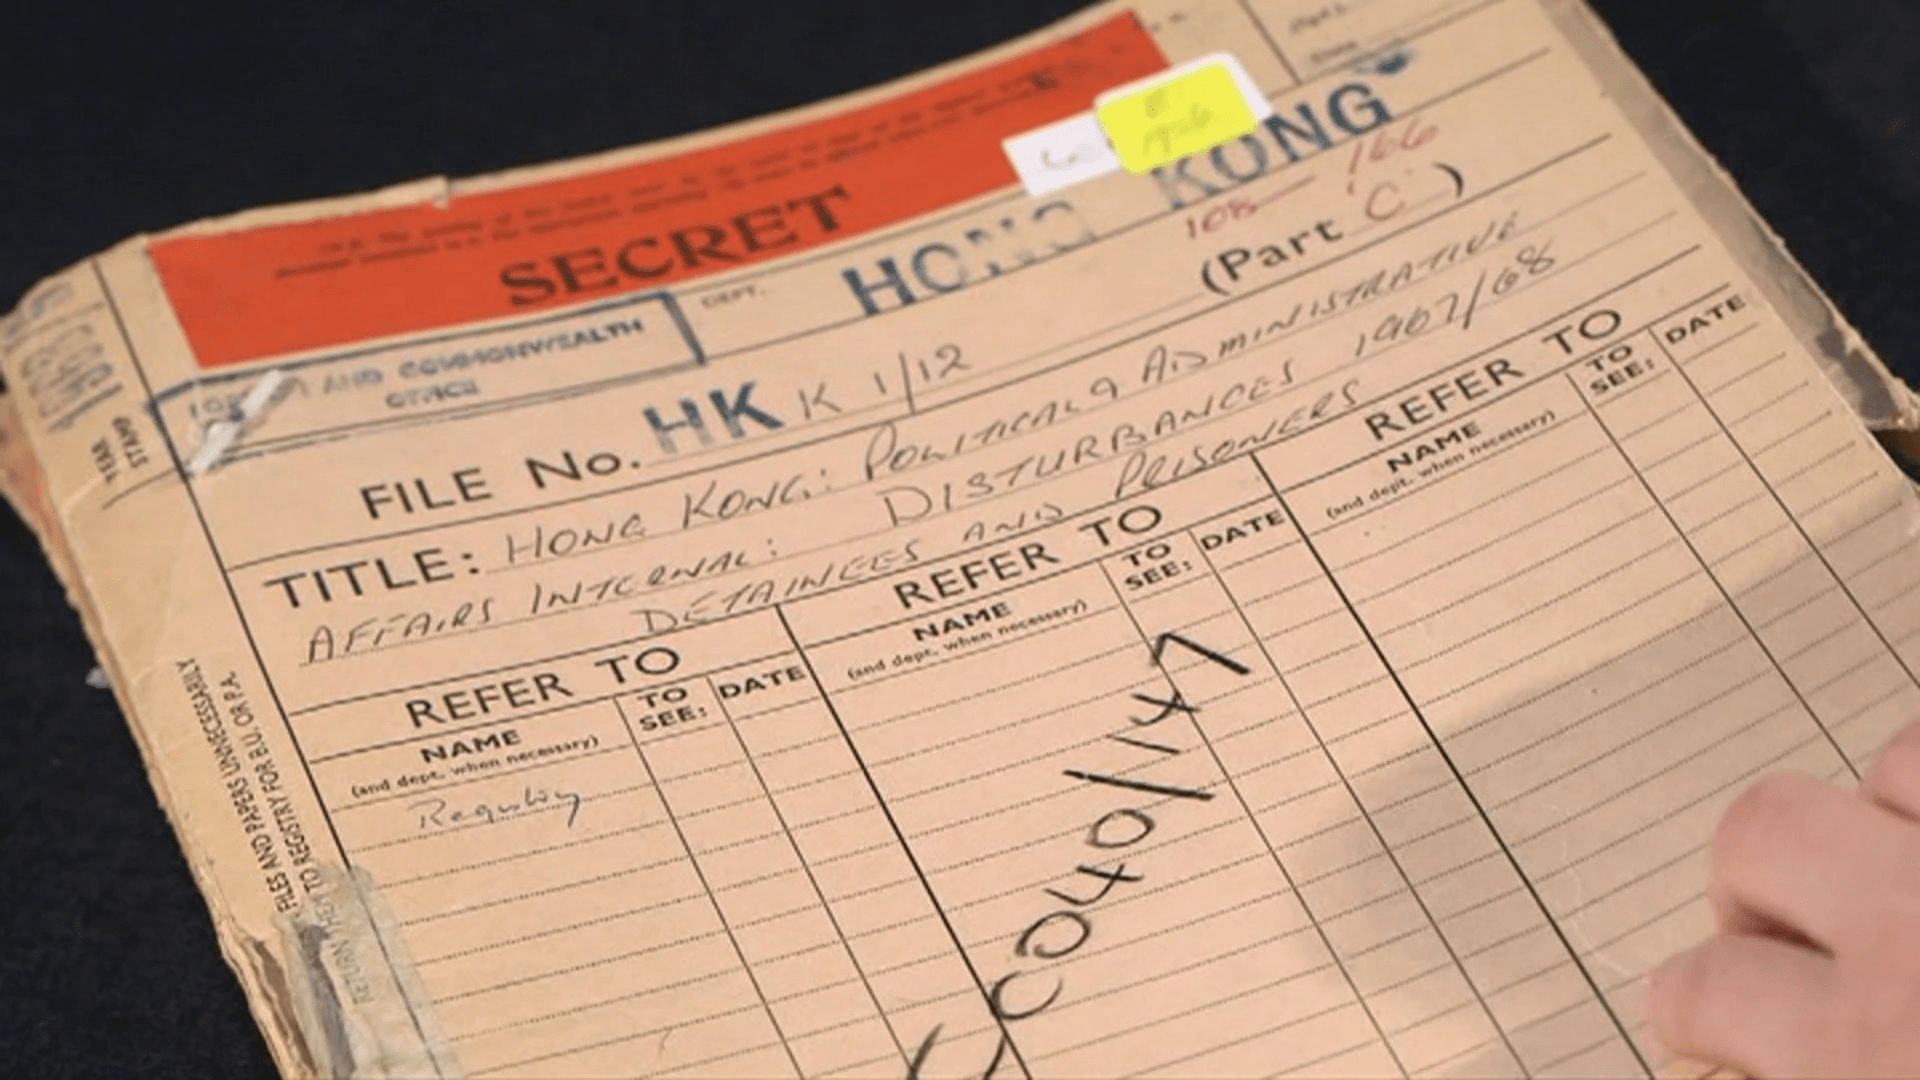 SECRET
DEPT. HONG KONG
108 — 166
AND COMMONWEALTH
OFFICE
FILE No. HK K 1/12 (Part C)
TITLE: HONG KONG: POLITICAL & ADMINISTRATIVE
AFFAIRS INTERNAL: DISTURBANCES 1967/68
DETAINEES AND PRISONERS
YEAR
STAMP
1968
REFER TO
NAME
(and dept. when necessary)
TO
SEE:
DATE
REFER TO
NAME
(and dept. when necessary)
TO
SEE:
DATE
REFER TO
NAME
(and dept. when necessary)
TO
SEE:
DATE
FILES AND PAPERS UNNECESSARILY
RETURN THEM TO REGISTRY FOR B.U. OR P.A.